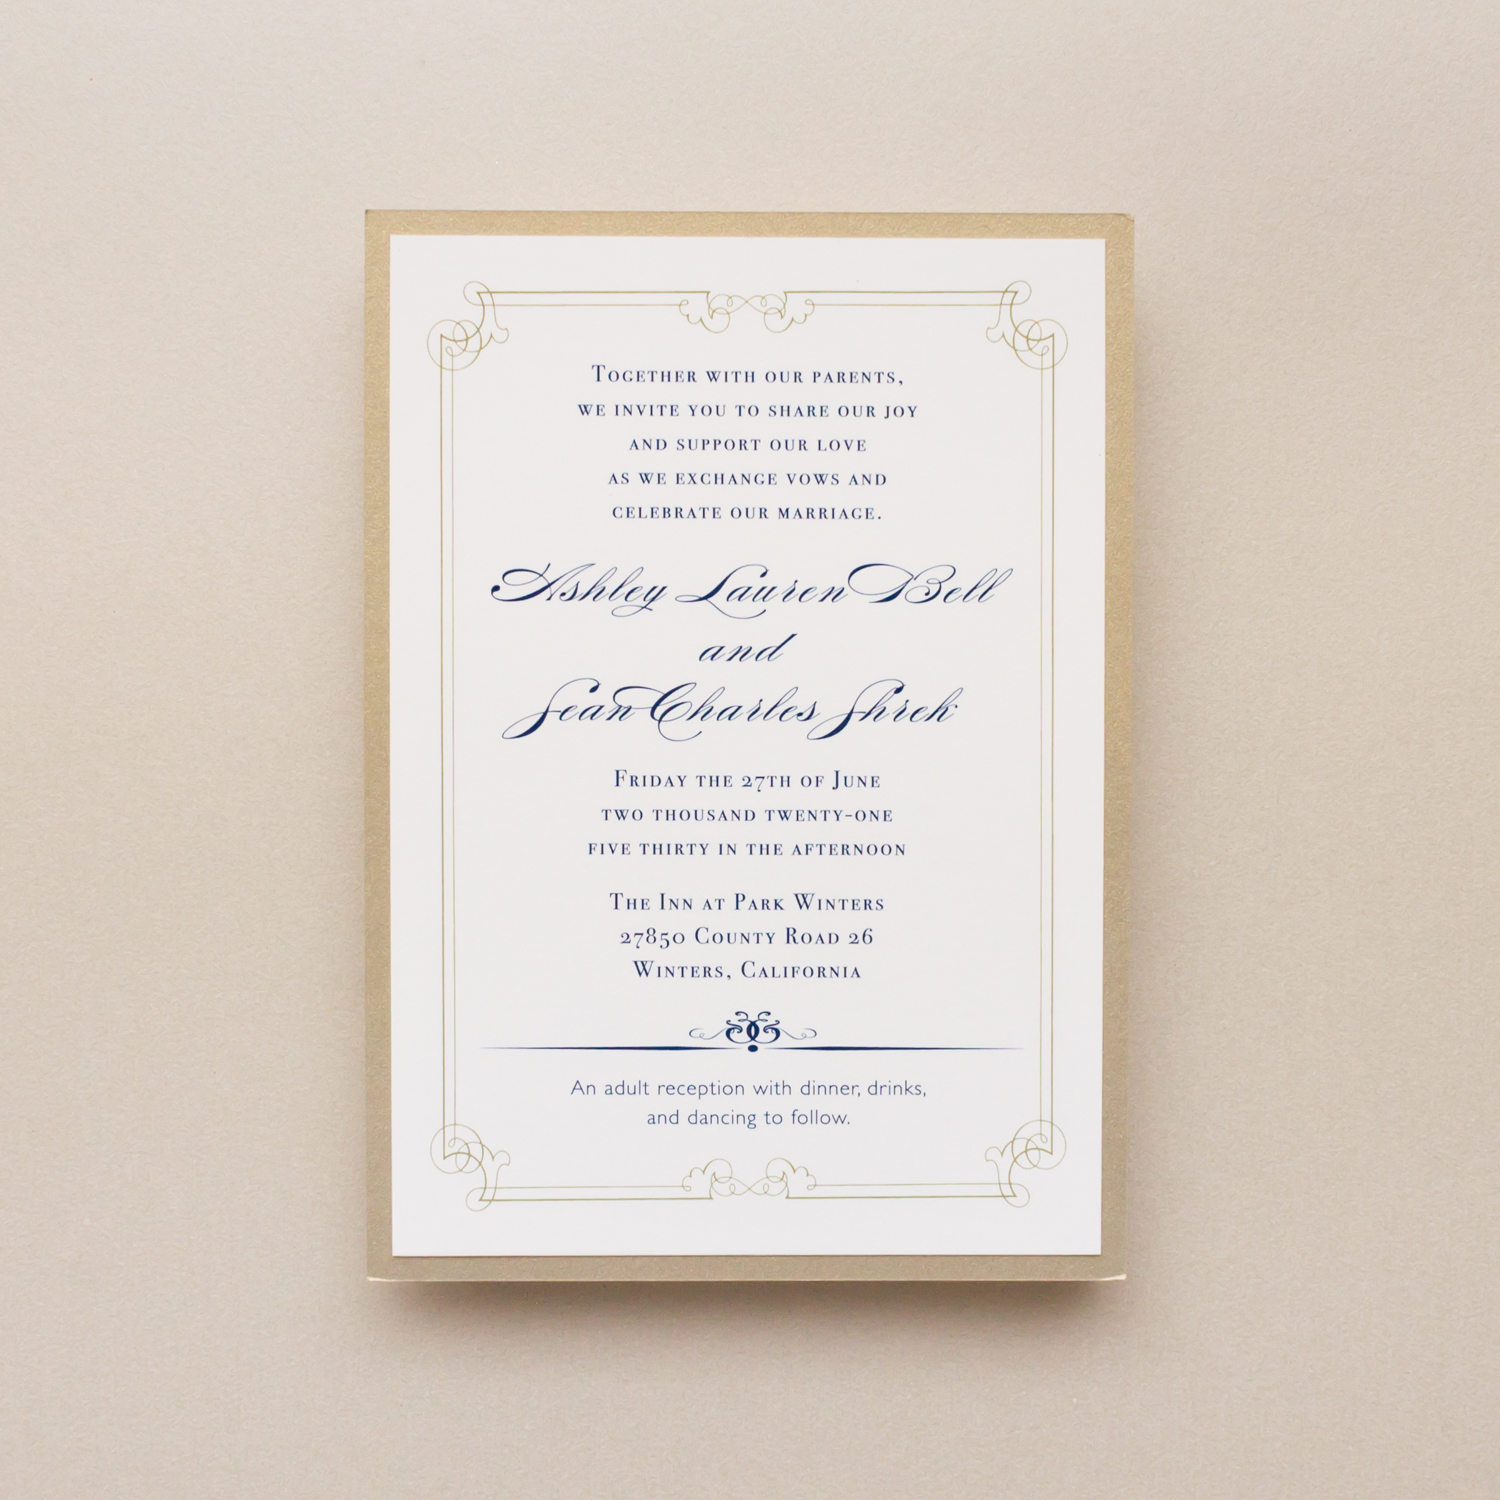 Together with our parents,
we invite you to share our joy
and support our love
as we exchange vows and
celebrate our marriage.
Ashley Lauren Bell
and
Sean Charles Shrek
Friday the 27th of June
two thousand twenty-one
five thirty in the afternoon
The Inn at Park Winters
27850 County Road 26
Winters, California
An adult reception with dinner, drinks,
and dancing to follow.